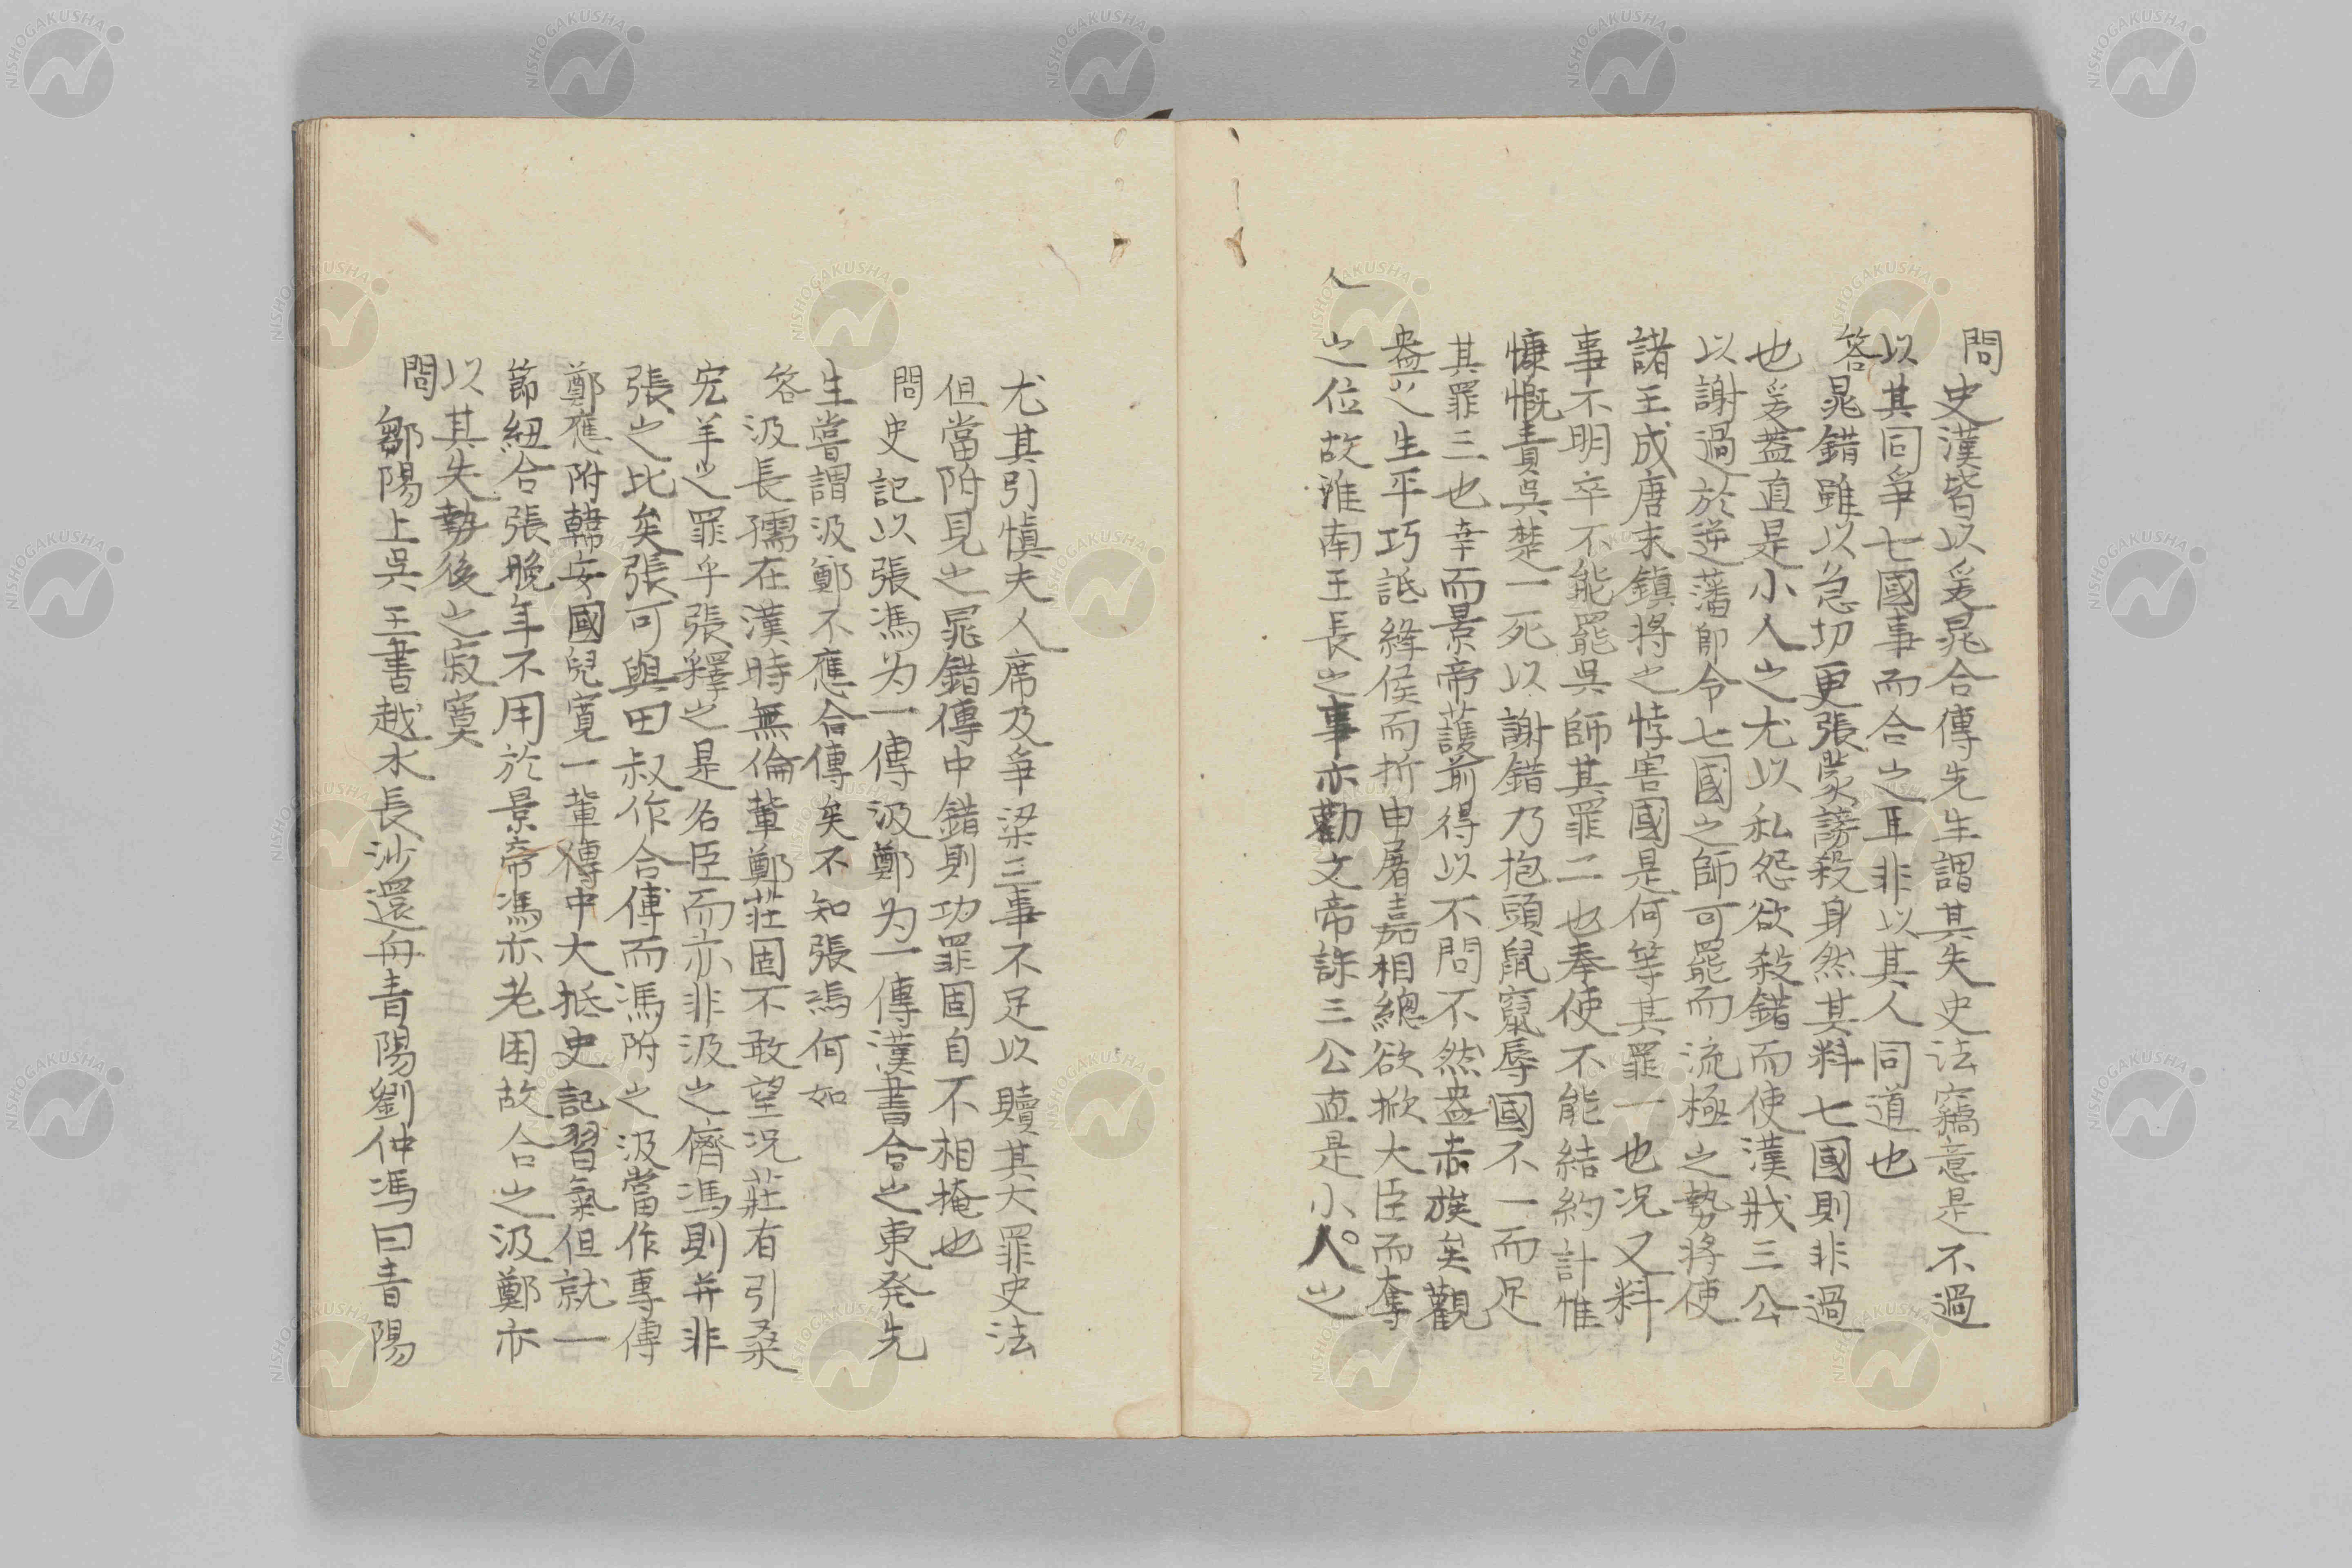 問史漢皆以爰晁合傳先生謂其失史法竊意是不過
以其同爭七國事而合之耳非以其人同道也
答晁錯雖以急切更張蒙謗殺身然其料七國則非過
也爰盎直是小人之尤以私怨欲殺錯而使漢戕三公
以謝過於逆藩即令七國之師可罷而流極之勢將使
諸王成唐末鎮將之悖害國是何等其罪一也況又料
事不明卒不能罷吳師其罪二也奉使不能結約計惟
慷慨責吳楚一死以謝錯乃抱頭鼠竄辱國不一而足
其罪三也幸而景帝護前得以不問不然盎赤族矣觀
盎之生平巧詆絳侯而折申屠嘉相總欲掀大臣而奪
人
之位故淮南王長之事亦勸文帝誅三公直是小人之
尤其引慎夫人席及爭梁三事不足以贖其大罪史法
但當附見之晁錯傳中錯則功罪固自不相掩也
問史記以張馮为一傳汲鄭为一傳漢書合之東発先
生嘗謂汲鄭不應合傳矣不知張馮何如
答汲長孺在漢時無倫輩鄭莊固不敢望況莊有引桑
宏羊之罪乎張釋之是名臣而亦非汲之儕馮則并非
張之比矣張可與田叔作合傳而馮附之汲當作專傳
鄭應附韓安國兒寬一輩傳中大抵史記習氣但就一
節紐合張晚年不用於景帝馮亦老困故合之汲鄭亦
以其失勢後之寂寞
問鄒陽上吳王書越水長沙還舟青陽劉仲馮曰青陽
NISHOGAKUSHA